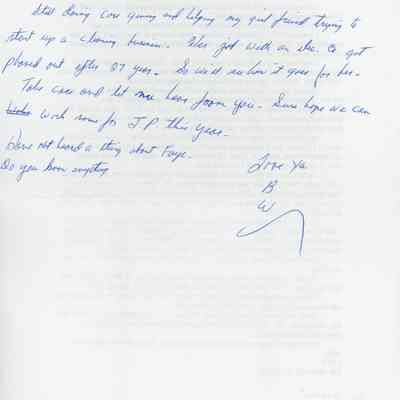 Still Doing Care giving and helping my girl friend trying to
start up a cleaning business. Her job with an ins. Co got
phased out after 27 years. So we'll see how it goes for her.
Take care and let me hear from you. Sure hope we can
work some for J.P. this year.
Have not heard a thing about Faye.
Do you know anything
Love Ya
B
W